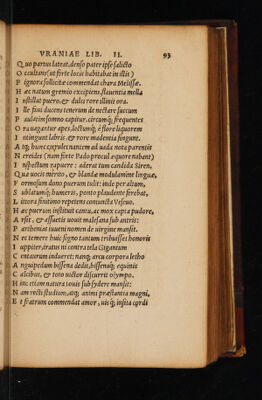 VRANIAE LIB. II. 93
Q uo partus lateat, denso pater ipse salicto
O ccultans (ut forte locis habitabat in illis)
P ignora sollicitæ commendat chara Melissæ.
H æc natum gremio excipiens, stauentia mella
I nstillat puero, & dulci rore illinit ora.
I lle fiui ducens tenerum de nectare succum
P aulatim somno capitur, circumq; frequentes
O rauagantur apes, lectumq; è flore liquorem
I ntingunt labris, & rore madentia fingunt.
A tq; hunc expulere nantem ad uada nota parentis
N ereides (nam fiete Pado procul æquore nabant)
I nspectum rapuere : aderat tum candida Siren,
Q uæ uocis mérito, & blandæ modulamine linguæ,
F ormosam dono puerum tulit: inde per altum,
S ublatumq; humeris, ponto plaudente ferebat,
L itora finitimo repetens conuncta Vesuo.
H æc puerum instituit cantu, ac mox capta pudore,
A rsit, & assuetis uouit malesana sub antris:
P arthenias iuueni nomen de uirgine mansit.
N ec temere huic signo tantum tribuisses honoris
I uppiter, iratus ni contra tela Gigantum
C entaurum induceret: nanq; arua corpora letho
A nguipedum bissena dedit, bissenáq; equinis
C alcibus, & toto uictor discurrit olympo.
H inc etiam natura Iouis subsydere mansit:
N am recti studium, atq; animi præstantia magni,
E t fratrum commendat amor, uiq; insita cordi